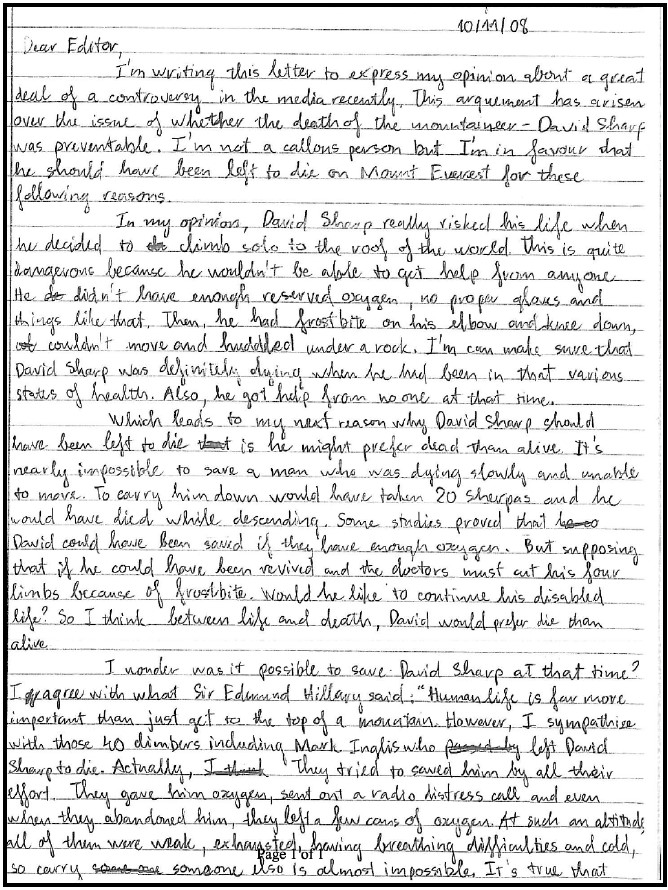 10/11/08
Dear Editor,
I'm writing this letter to express my opinion about a great
deal of a controversy in the media recently. This arguement has arisen
over the issue of whether the death of the mountaineer - David Sharp
was preventable. I'm not a callous person but I'm in favour that
he should have been left to die on Mount Everest for these
following reasons.
In my opinion, David Sharp really risked his life when
he decided to climb solo to the roof of the world. This is quite
dangerous because he wouldn't be able to get help from anyone.
He didn't have enough reserved oxygen, no proper gloves and
things like that. Then, he had frostbite on his elbow and knee down,
couldn't move and huddled under a rock. I'm can make sure that
David Sharp was definitely dying when he had been in that various
status of health. Also, he got help from no one at that time.
Which leads to my next reason why David Sharp should
have been left to die is he might prefer dead than alive. It's
nearly impossible to save a man who was dying slowly and unable
to move. To carry him down would have taken 20 sherpas and he
would have died while descending. Some studies proved that
David could have been saved if they have enough oxygen. But supposing
that if he could have been revived and the doctors must cut his four
limbs because of frostbite. Would he like to continue his disabled
life? So I think between life and death, David would prefer die than
alive.
I wonder was it possible to save David Sharp at that time?
I agree with what Sir Edmund Hillary said: "Human life is far more
important than just get to the top of a mountain. However, I sympathise
with those 40 climbers including Mark Inglis who left David
Sharp to die. Actually, They tried to saved him by all their
effort. They gave him oxygen, sent out a radio distress call and even
when they abandoned him, they left a few cans of oxygen. At such an altitude,
all of them were weak, exhausted, having breathing difficulties and cold,
so carry someone else is almost impossible. It's true that
Page 1 of 1